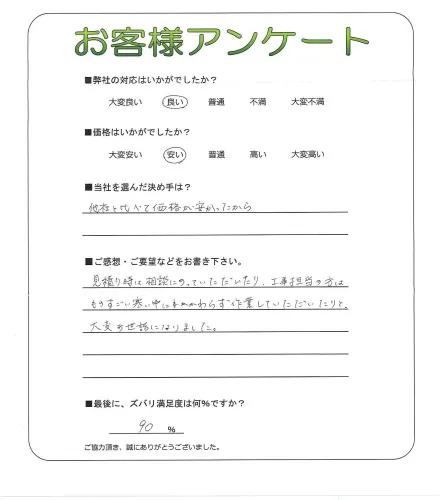 お客様アンケート
■弊社の対応はいかがでしたか?
大変良い 良い 普通 不満 大変不満
■価格はいかがでしたか?
大変安い 安い 普通 高い 大変高い
■当社を選んだ決め手は?
他社と比べて価格が安かったから
■ご感想・ご要望などをお書き下さい。
見積り時は相談にのっていただいたり、工事担当の方は
ものすごい寒い中にもかかわらず作業していただいたりと、
大変お世話になりました。
■最後に、ズバリ満足度は何%ですか?
90 %
ご協力頂き、誠にありがとうございました。